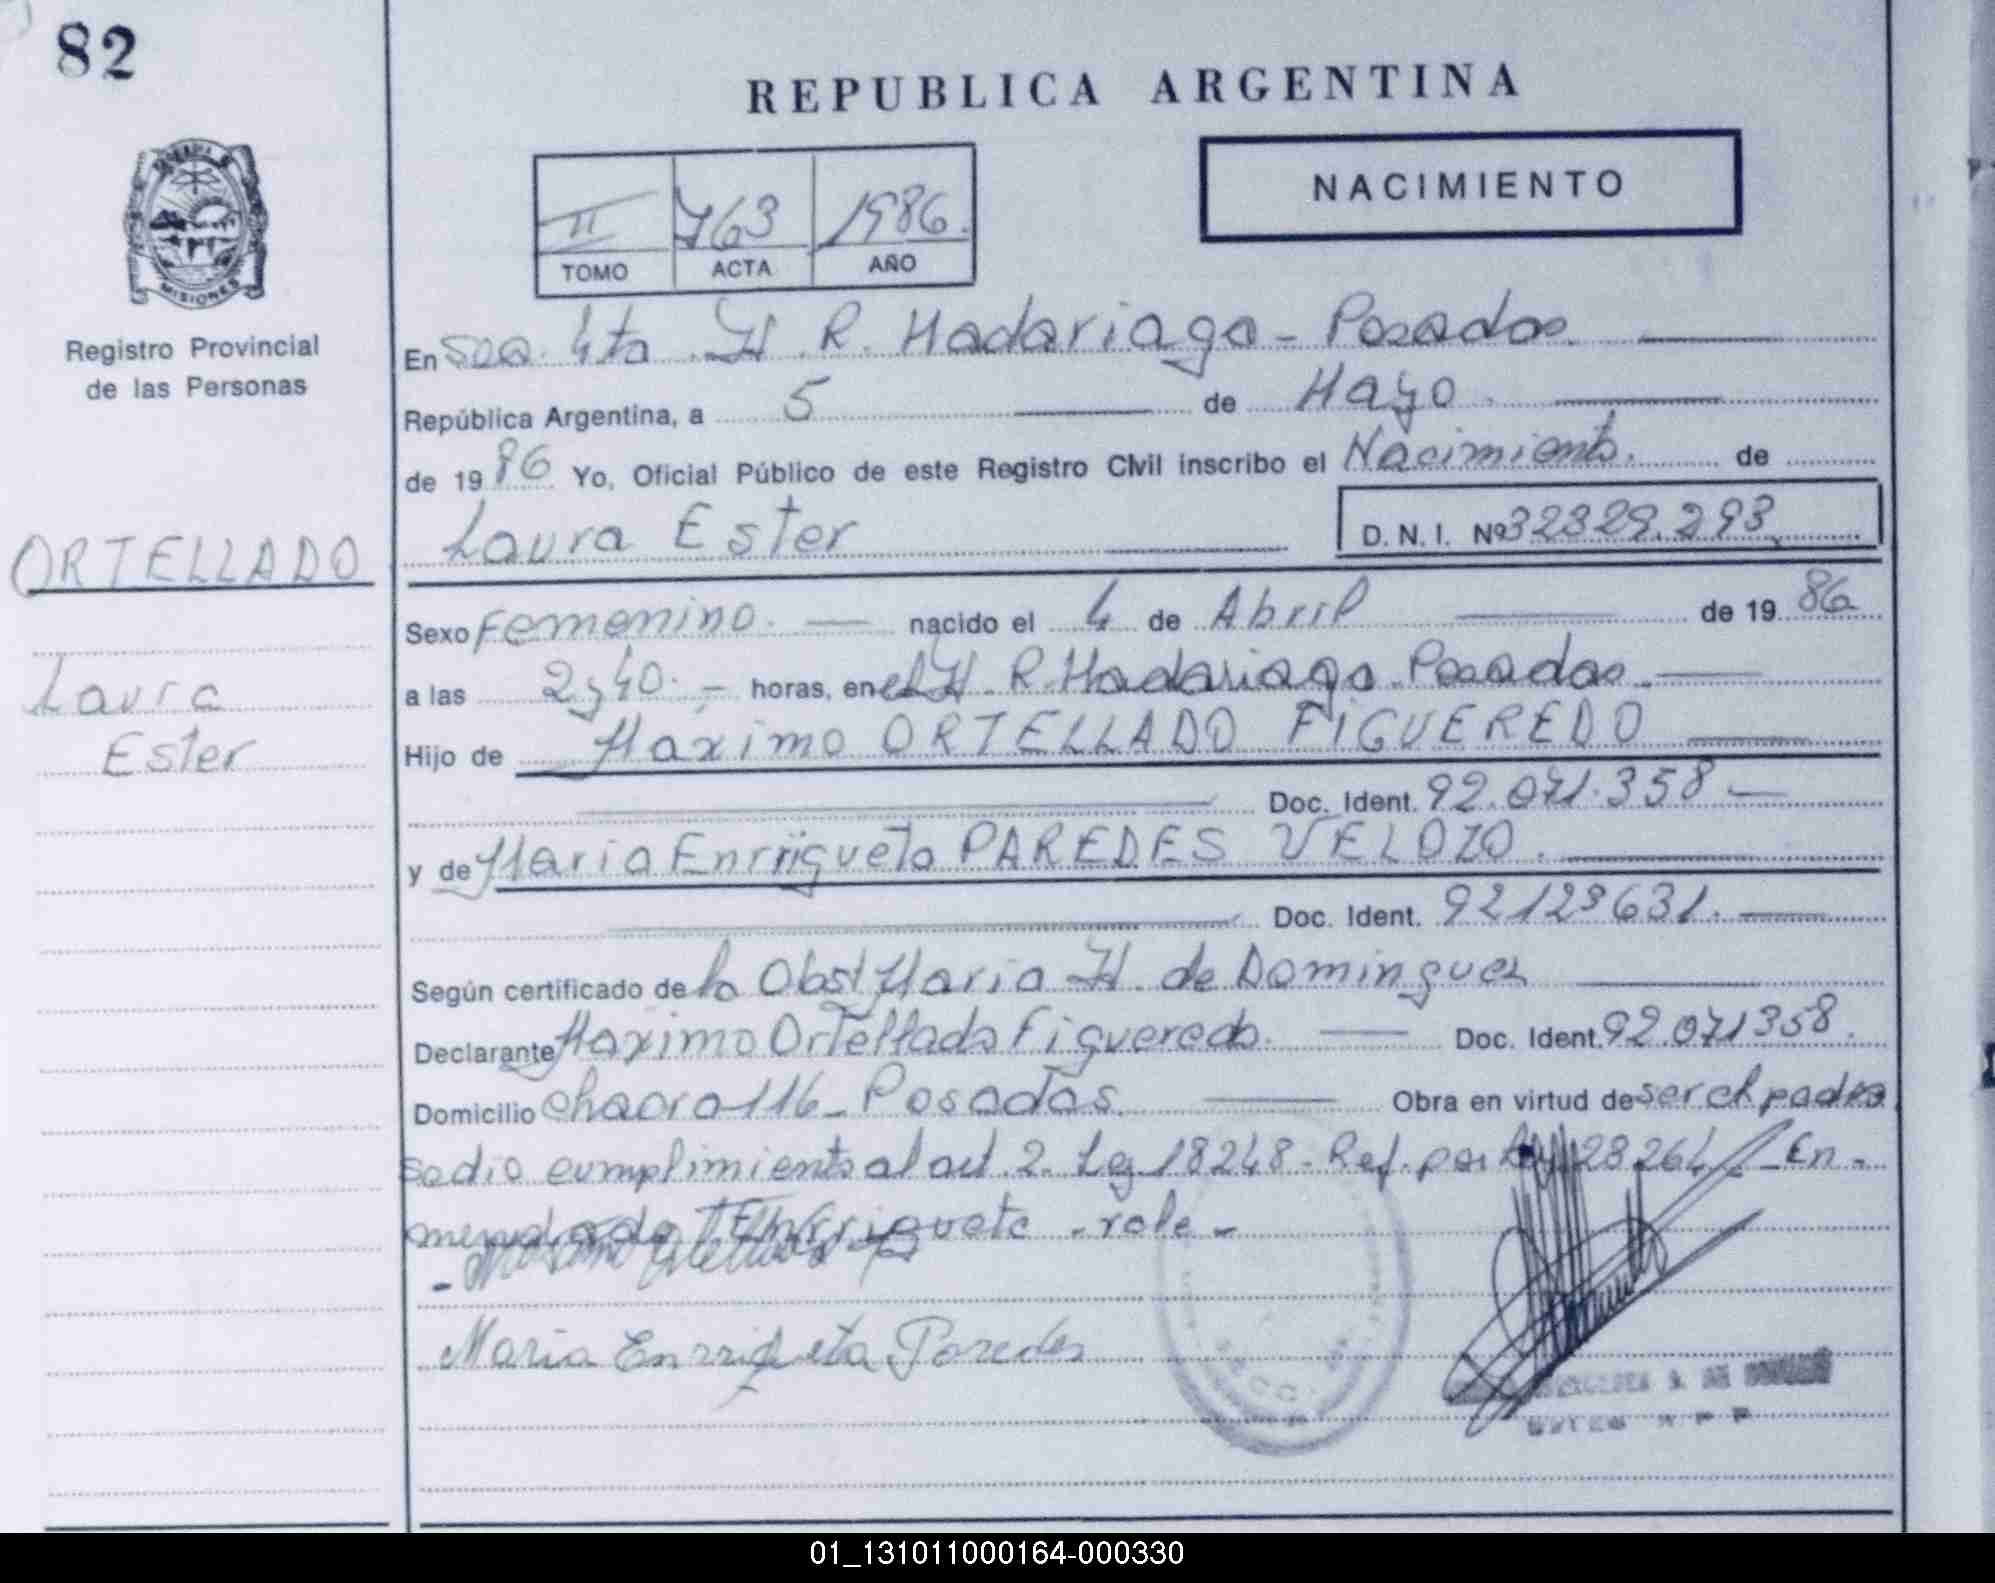 82
REPUBLICA ARGENTINA
NACIMIENTO
II 763 1986.
TOMO ACTA AÑO
MISIONES
Registro Provincial
de las Personas
ORTELLADO
Laura
Ester
En Sec. 4ta H. R. Madariaga - Posadas.
República Argentina, a 5 de Mayo.
de 1986 Yo, Oficial Público de este Registro Civil inscribo el Nacimiento. de
Laura Ester D. N. I. Nº 32329.293
Sexo Femenino. nacido el 4 de Abril de 19 86
a las 2,40.- horas, en el H. R. Madariaga Posadas.
Hijo de Maximo ORTELLADO FIGUEREDO
Doc. Ident. 92.071.358 -
y de Maria Enrriqueta PAREDES VELOZO.
Doc. Ident. 92123631.
Según certificado de la Obst Maria H. de Dominguez
Declarante Maximo Ortellado Figueredo. Doc. Ident. 92.071358.
Domicilio chacra 116 - Posadas. Obra en virtud de ser el padre
se dio cumplimiento al art. 2. Ley 18248 - Ref. por Ley 23264 - En -
mendado Enrriqueta - vale -
Maria Enrriqueta Paredes
01_131011000164-000330